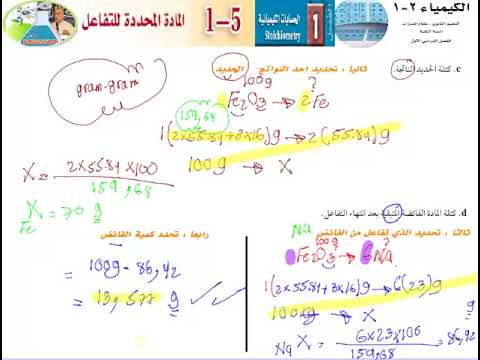 الكيمياء ٢-١
التعليم الثانوي - نظام المسارات
السنة الثانية
الفصل الدراسي الأول
الفصل
1
الحسابات الكيميائية
Stoichiometry
1-5
المادة المحددة للتفاعل
c. كتلة الحديد الناتجة.
ثانيا : تحديد احد النواتج الحديد
gram-gram
100g ?
Fe₂O₃ → 2Fe
159,68
1(2×55.84+3×16)g → 2(55.84)g
100g → X
X = 2×55.84×100
159,68
X Fe = 70 g
d. كتلة المادة الفائضة المتبقية بعد انتهاء التفاعل.
ثالثا : تحديد الذي تفاعل من الفائض Na
رابعا : تحدد كمية الفائض
100g ?
Fe₂O₃ → 6Na
1(2×55.84+3×16)g → 6(23)g
100g → X
Na X = 6×23×100 = 86,42
159,68 g
= 100g - 86,42
= 13,577 g